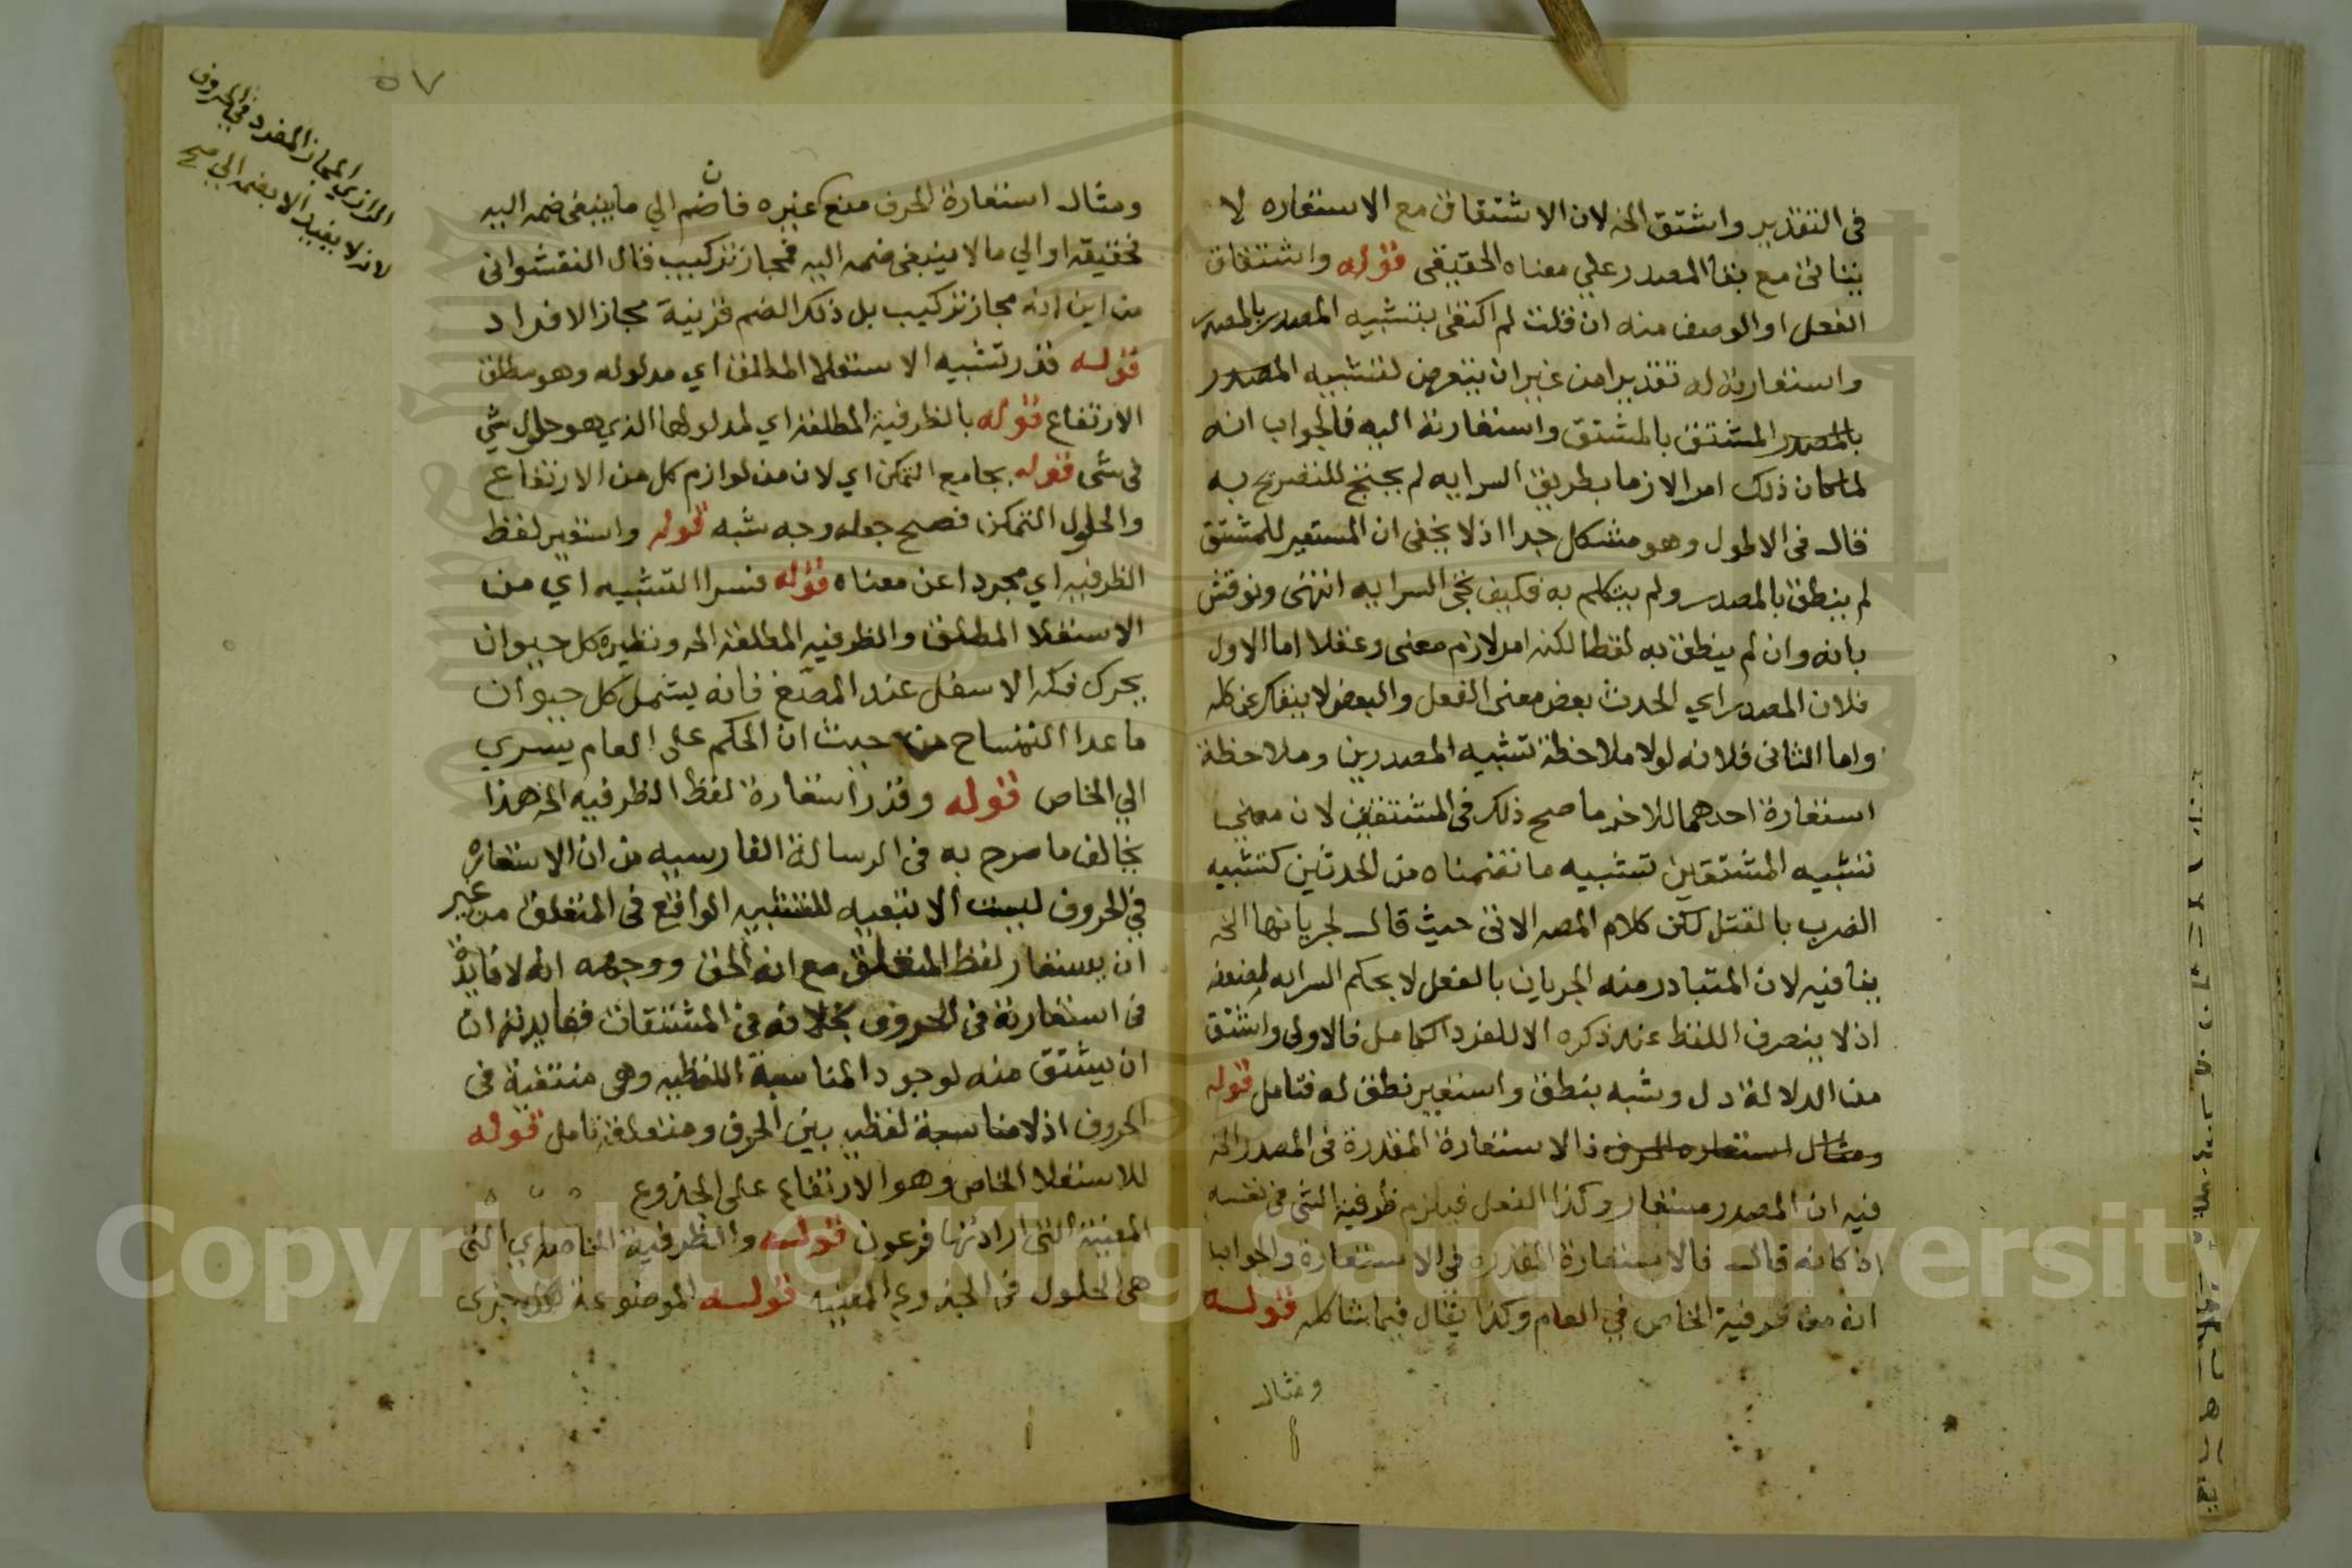 في التقدير واشتق الخ لان الاشتقاق مع الاستعاره لا
يتاتى مع بقا المصدر علي معناه الحقيقى قوله واشتقاق
الفعل او الوصف منه ان قلت لم اكتفى بتشبيه المصدر بالمصدر
واستعارته له تقديرا من غير ان يتعرض لتشبيه المصدر
بالمصدر المشتق بالمشتق واستعارته اليه فالجواب انه
لما كان ذلك امرا لازما بطريق السرايه لم يحتج للتصريح به
قال في الاطول وهو مشكل جدا اذ لا يخفى ان المستعير للمشتق
لم ينطق بالمصدر ولم يتكلم به فكيف السرايه انتهى ونوقش
بانه وان لم ينطق به لفظا لكنه امر لازم معنى وعقلا اما الاول
فلان المصدر اي الحدث بعض معنى الفعل والبعض لا ينفك عن كله
واما الثانى فلانه لولا ملاحظة تشبيه المصدرين وملاحظة
استعارة احدهما للاخر ما صح ذلك في المشتقين لان معنى
تشبيه المشتقين تشبيه ما تضمناه من الحدثين كتشبيه
الضرب بالقتل لكن كلام المصـ الاتى حيث قال لجريانها الخ
ينافيه لان المتبادر منه الجريان بالفعل لا بحكم السرايه
اذ لا ينصرف اللفظ عند ذكره الا للفرد الكامل فالاولى واشتق
من الدلالة دل وشبه بنطق واستعير نطق له فتامل قوله
ومثال استعاره الحرف ذا الاستعارة المقدرة فى المصدر الخ
فيه ان المصدر مستعار وكذا الفعل فيلزم ظرفية الشى في نفسه
اذ كانه قال فالاستعارة المقدره في الاستعارة والجواب
انه من ظرفية الخاص في العام وكذا يقال فيما شاكله قوله
ومثال
٥٧
الرازي المجاز المفرد في الحروف
لانه لا يفيد الا بضمه الي صح
ومثال استعارة الحرف منع غيره فان ضم الي ما ينبغى ضمه اليه
فحقيقه او الي ما لا ينبغى ضمه اليه فمجاز تركيب قال النقشوانى
من اين انه مجاز تركيب بل ذلك الضم قرينة مجاز الافراد
قوله قدر تشبيه الاستعلا المطلق اي مدلوله وهو مطلق
الارتفاع قوله بالظرفية المطلقه اي لمدلولها الذي هو حلول شي
في شى قوله بجامع التمكن اي لان من لوازم كل من الارتفاع
والحلول التمكن فصح جعله وجه شبه قوله واستعير لفظ
الظرفيه اي مجردا عن معناه قوله فسرا التشبيه اي من
الاستعلا المطلق والظرفيه المطلقه الخ ونظيره كل حيوان
يحرك فكه الاسفل عند المضغ فانه يشمل كل حيوان
ما عدا التمساح من حيث ان الحكم على العام يسري
الي الخاص قوله وقدر استعارة لفظ الظرفيه الخ هذا
يخالف ما صرح به فى الرسالة الفارسيه من ان الاستعاره
في الحروف ليست الا تبعيه للتشبيه الواقع فى المتعلق من غير
ان يستعار لفظ المتعلق مع انه الحق ووجهه انه لا فايدة
فى استعارته فى الحروف بخلافه في المشتقات ففايدته ان
ان يشتق منه لوجود المناسبة اللفظيه وهى منتفية فى
الحروف اذ لا مناسبة لفظيه بين الحرف ومتعلقه تامل قوله
للاستعلا الخاص وهو الارتفاع على الجذوع
المعينة التى ارادتها فرعون قوله والظرفية الخاصه اي التى
هى الحلول في الجذوع المعينه قوله الموضوعة لكل جزى
Copyright © King Saud University